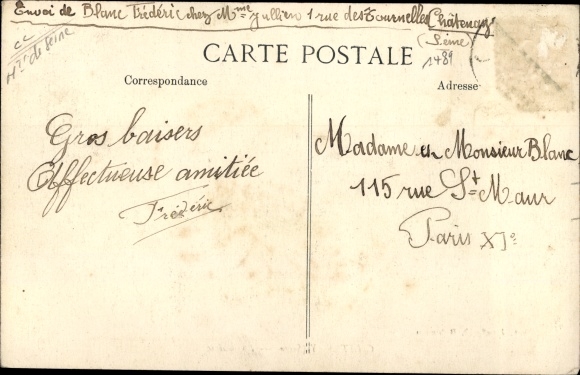 Envoi de Blanc Frédéric chez Mme Jullien 1 rue des Tournelles Châtenay
(Seine)
1489
CC
Hts de Seine
CARTE POSTALE
Correspondance
Adresse
Gros baisers
Affectueuse amitiée
Frédéric
Madame et Monsieur Blanc
115 rue St Maur
Paris XIe